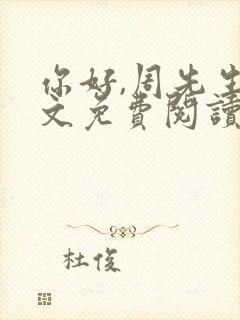 你好,周先生
文免費閱讀
杜俊